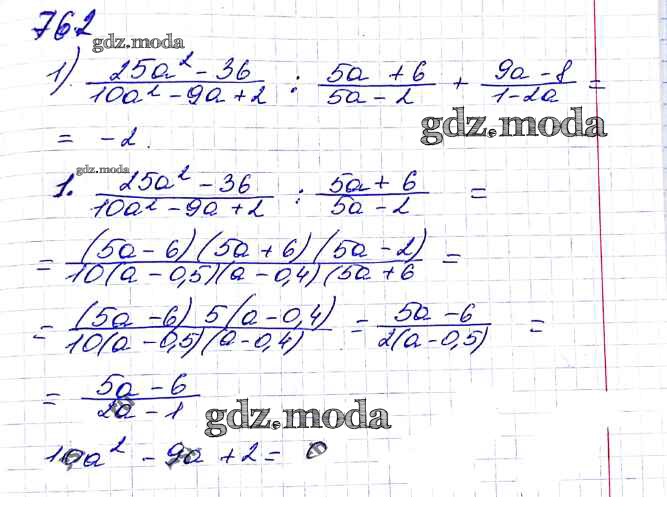 762
gdz.moda
1) (25a² - 36)/(10a² - 9a + 2) : (5a + 6)/(5a - 2) + (9a - 8)/(1 - 2a) =
gdz.moda
= -2.
gdz.moda
1. (25a² - 36)/(10a² - 9a + 2) : (5a + 6)/(5a - 2) =
= ((5a - 6)(5a + 6)(5a - 2))/(10(a - 0,5)(a - 0,4)(5a + 6) =
= ((5a - 6) 5(a - 0,4))/(10(a - 0,5)(a - 0,4)) = (5a - 6)/(2(a - 0,5)) =
= (5a - 6)/(2a - 1)
gdz.moda
10a² - 9a + 2 = 0